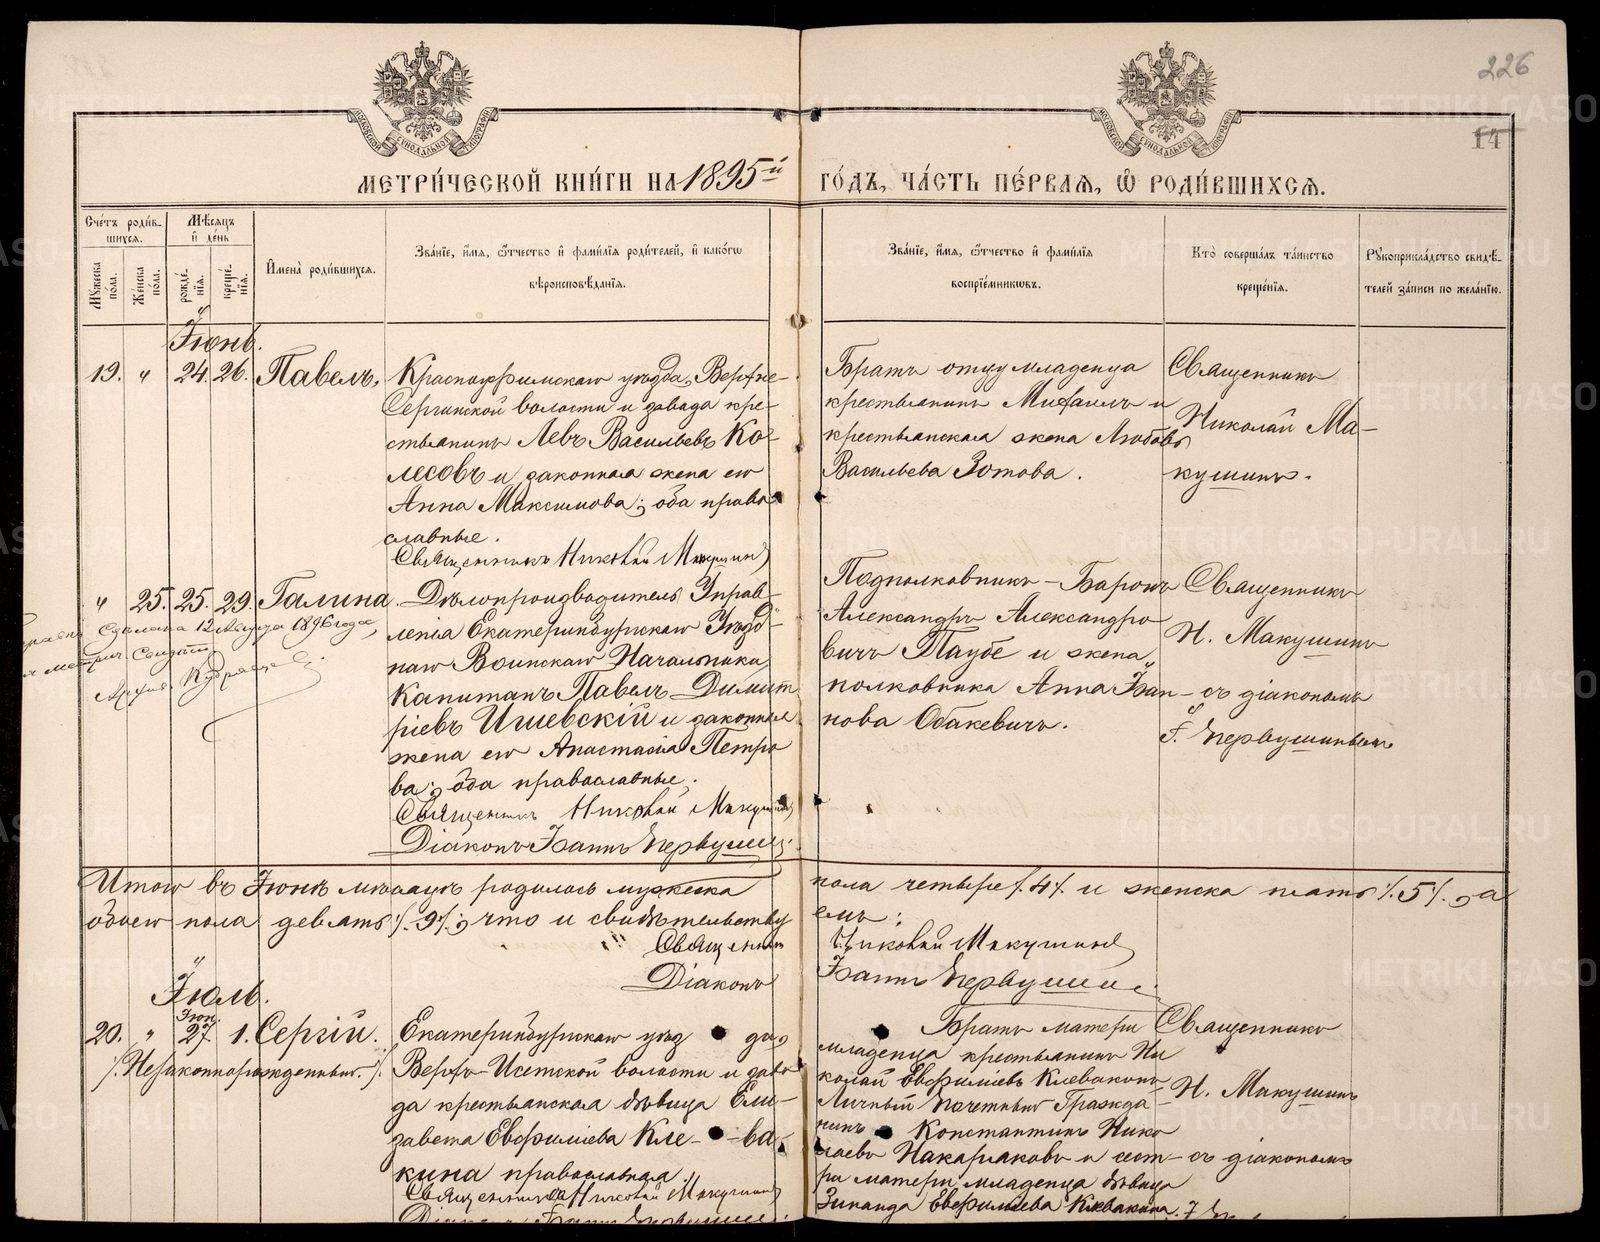 226
14
МОСКОВСКОЙ СѴНОДАЛЬНОЙ ТИПОГРАФІИ
МОСКОВСКОЙ СѴНОДАЛЬНОЙ ТИПОГРАФІИ
МЕТРИ́ЧЕСКОЙ КНИ́ГИ НА 1895й ГО́ДЪ, ЧА́СТЬ ПЕ́РВАѦ, Ѽ РОДИ́ВШИХСѦ.
Сче́тъ роди́в-
шихсѧ.
Мѣ́сѧцъ
и҆ де́нь
Му́жеска
по́ла.
Же́нска
по́ла.
рожде́-
нїѧ.
креще́-
нїѧ.
И҆мена̀ роди́вшихсѧ.
Зва́нїе, и҆́мѧ, ѻ҆́тчество и҆ фами́лїѧ роди́телей, и҆ како́гѡ
вѣроисповѣ́данїѧ.
Зва́нїе, и҆́мѧ, ѻ҆́тчество и҆ фами́лїѧ
воспрїе́мникѡвъ.
Кто̀ соверша́лъ та́инство
креще́нїѧ.
Рꙋкоприкла́дство свидѣ́-
телей за́писи по жела́нїю.
Іюнь.
19. " 24. 26. Павелъ,
Красноуфимскаго уѣзда, Верхне-
Сергинской волости и завода кре-
стьянинъ Левъ Васильевъ Ко-
лесовъ и законная жена его
Анна Максимова; оба право
славные.
Священникъ Николай Макушинъ
Братъ отцу младенца
крестьянинъ Михаилъ и
крестьянская жена Любовь
Васильева Зотова.
Священникъ
Николай Ма-
кушинъ.
" 25. 25. 29. Галина.
Сдѣлана 12 августа 1896 года,
Дѣлопроизводитель Управ-
ленія Екатеринбургскаго Уѣзд-
наго Воинскаго Начальника,
Капитанъ Павелъ Димит
ріевъ Ишевскій и законная
жена его Анастасія Петро
ва; оба православные.
Священникъ Николай Макушинъ
Діаконъ Іоаннъ Первушинъ
Подполковникъ - Баронъ
Александръ Александро
вичъ Таубе и жена
полковника Анна Іоан-
нова Обакевичъ.
Священникъ
Н. Макушинъ
съ діакономъ
І. Первушинымъ
Итого въ Іюнѣ мѣсяцѣ родилось мужеска пола четыре /.4/. и женска пять /.5/., а
обоего пола девять /.9/.; что и свидѣтельству емъ:
Священникъ Николай Макушинъ
Діаконъ Іоаннъ Первушинъ
Іюль.
Іюн.
20. " 27. 1. Сергій.
/.Незаконнорожденный./.
Екатеринбургскаго уѣз да,
Верхъ-Исетской волости и заво
да крестьянская дѣвица Ели-
завета Евфиміева Кле- -ва-
кина православная.
Священникъ Николай Макушинъ
Діаконъ Іоаннъ Первушинъ
Братъ матери
младенца крестьянинъ Ни
колай Евфиміевъ Клевакинъ
Личный Почетный Гражда-
нинъ Константинъ Нико
лаевъ Накаряковъ и сест-
ра матери младенца дѣвица
Зинаида Евфиміева Клевакина.
Священникъ
Н. Макушинъ
съ діакономъ